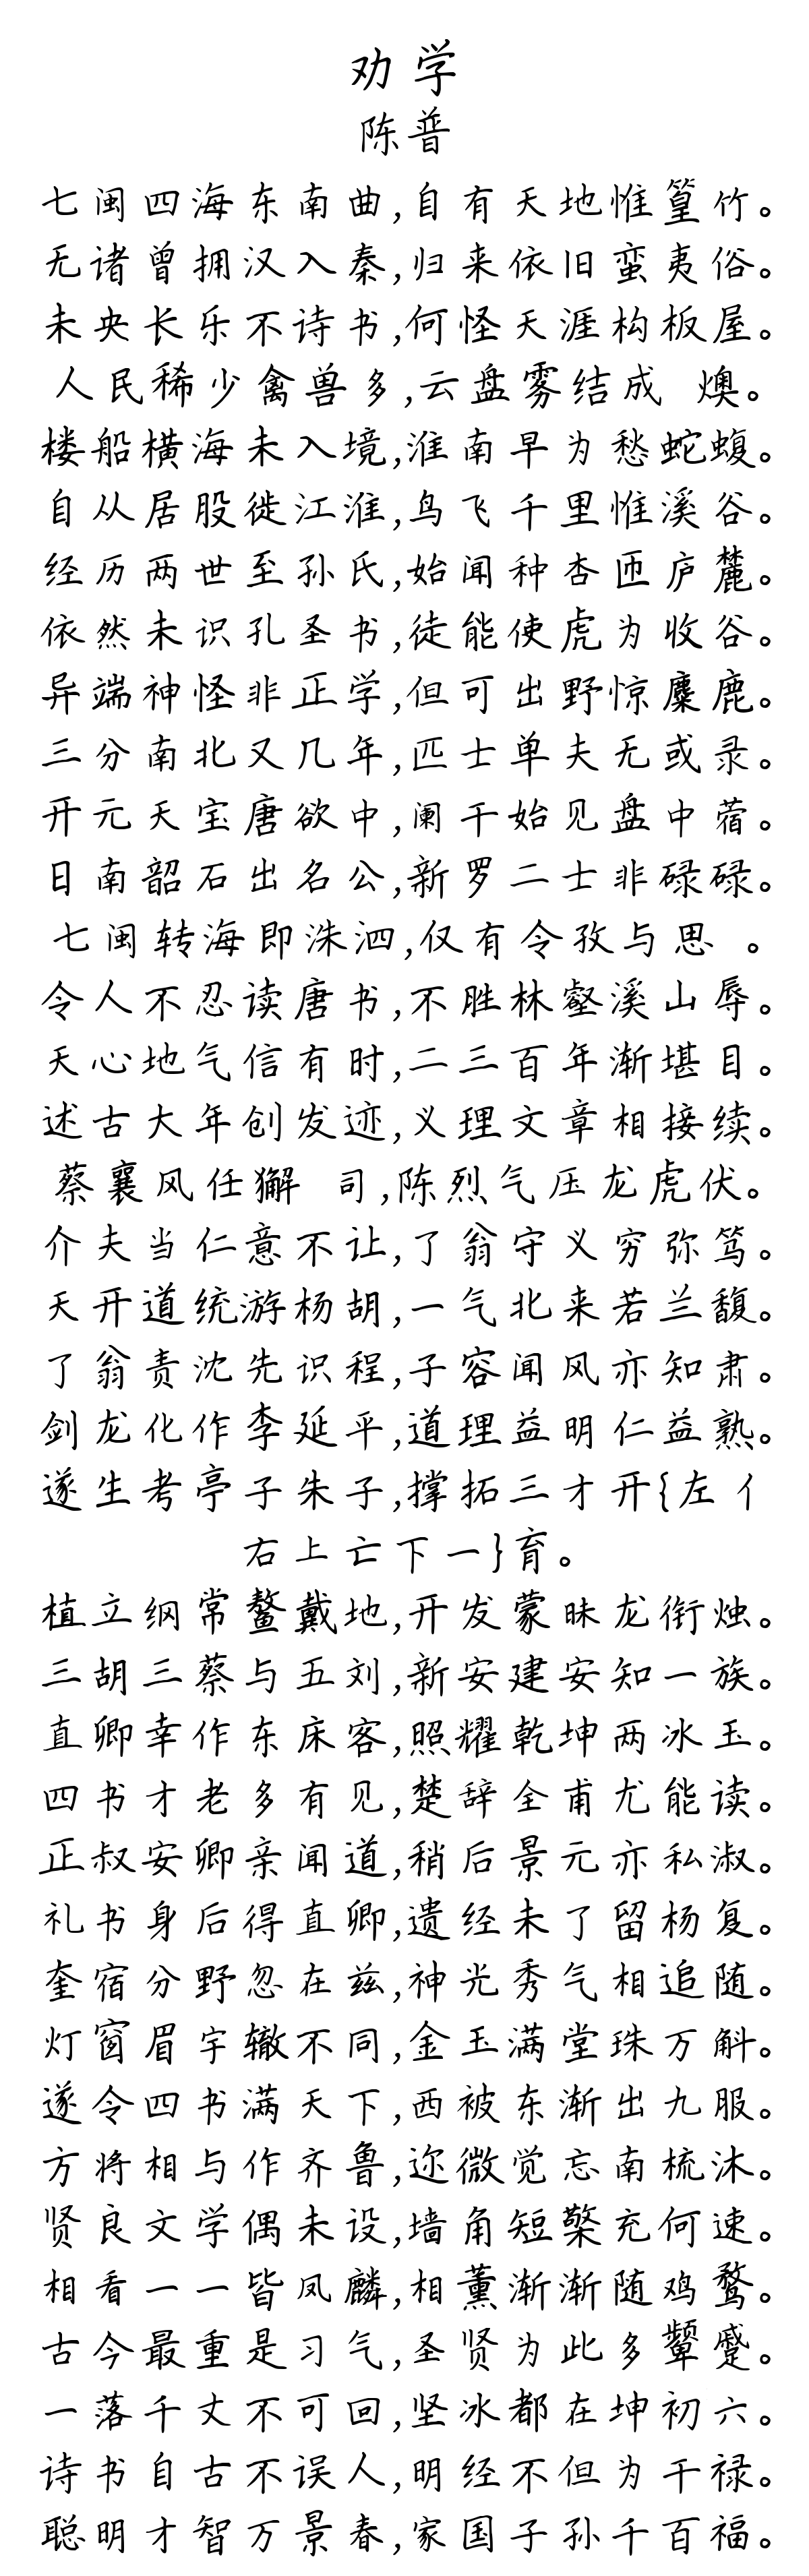 劝学
陈普
七闽四海东南曲,自有天地惟篁竹。
无诸曾拥汉入秦,归来依旧蛮夷俗。
未央长乐不诗书,何怪天涯构板屋。
人民稀少禽兽多,云盘雾结成 燠。
楼船横海未入境,淮南早为愁蛇蝮。
自从居股徙江淮,鸟飞千里惟溪谷。
经历两世至孙氏,始闻种杏匝庐麓。
依然未识孔圣书,徒能使虎为收谷。
异端神怪非正学,但可出野惊麇鹿。
三分南北又几年,匹士单夫无或录。
开元天宝唐欲中,阑干始见盘中蓿。
日南韶石出名公,新罗二士非碌碌。
七闽转海即洙泗,仅有令孜与思 。
令人不忍读唐书,不胜林壑溪山辱。
天心地气信有时,二三百年渐堪目。
述古大年创发迹,义理文章相接续。
蔡襄风任獬 司,陈烈气压龙虎伏。
介夫当仁意不让,了翁守义穷弥笃。
天开道统游杨胡,一气北来若兰馥。
了翁责沈先识程,子容闻风亦知肃。
剑龙化作李延平,道理益明仁益熟。
遂生考亭子朱子,撑拓三才开{左亻
右上亡下一}育。
植立纲常鳌戴地,开发蒙昧龙衔烛。
三胡三蔡与五刘,新安建安知一族。
直卿幸作东床客,照耀乾坤两冰玉。
四书才老多有见,楚辞全甫尤能读。
正叔安卿亲闻道,稍后景元亦私淑。
礼书身后得直卿,遗经未了留杨复。
奎宿分野忽在兹,神光秀气相追随。
灯窗眉宇辙不同,金玉满堂珠万斛。
遂令四书满天下,西被东渐出九服。
方将相与作齐鲁,迩微觉忘南梳沐。
贤良文学偶未设,墙角短檠充何速。
相看一一皆凤麟,相薰渐渐随鸡鹜。
古今最重是习气,圣贤为此多颦蹙。
一落千丈不可回,坚冰都在坤初六。
诗书自古不误人,明经不但为干禄。
聪明才智万景春,家国子孙千百福。